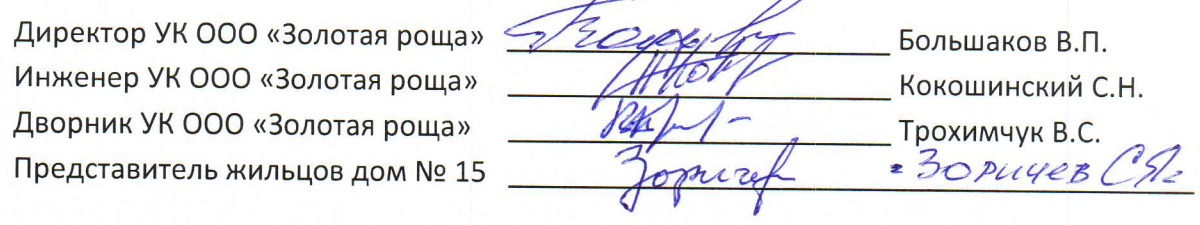 Директор УК ООО «Золотая роща» Большаков В.П.
Инженер УК ООО «Золотая роща» Кокошинский С.Н.
Дворник УК ООО «Золотая роща» Трохимчук В.С.
Представитель жильцов дом № 15 Зоричев Зоричев С.Я.